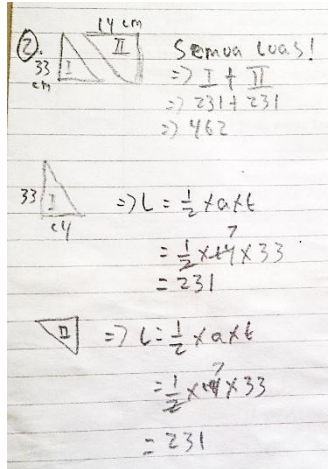 2. 14 cm
33 cm I II
Semua luas!
=> I + II
=> 231 + 231
=> 462
33 I
14
=> L = 1/2 x a x t
= 1/2 x 14 7 x 33
= 231
II => L = 1/2 x a x t
= 1/2 x 14 7 x 33
= 231